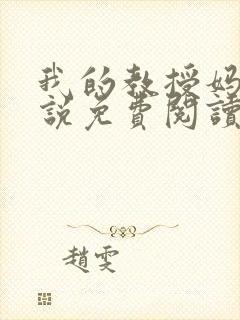 我的教授媽
說免費閱讀
趙雯